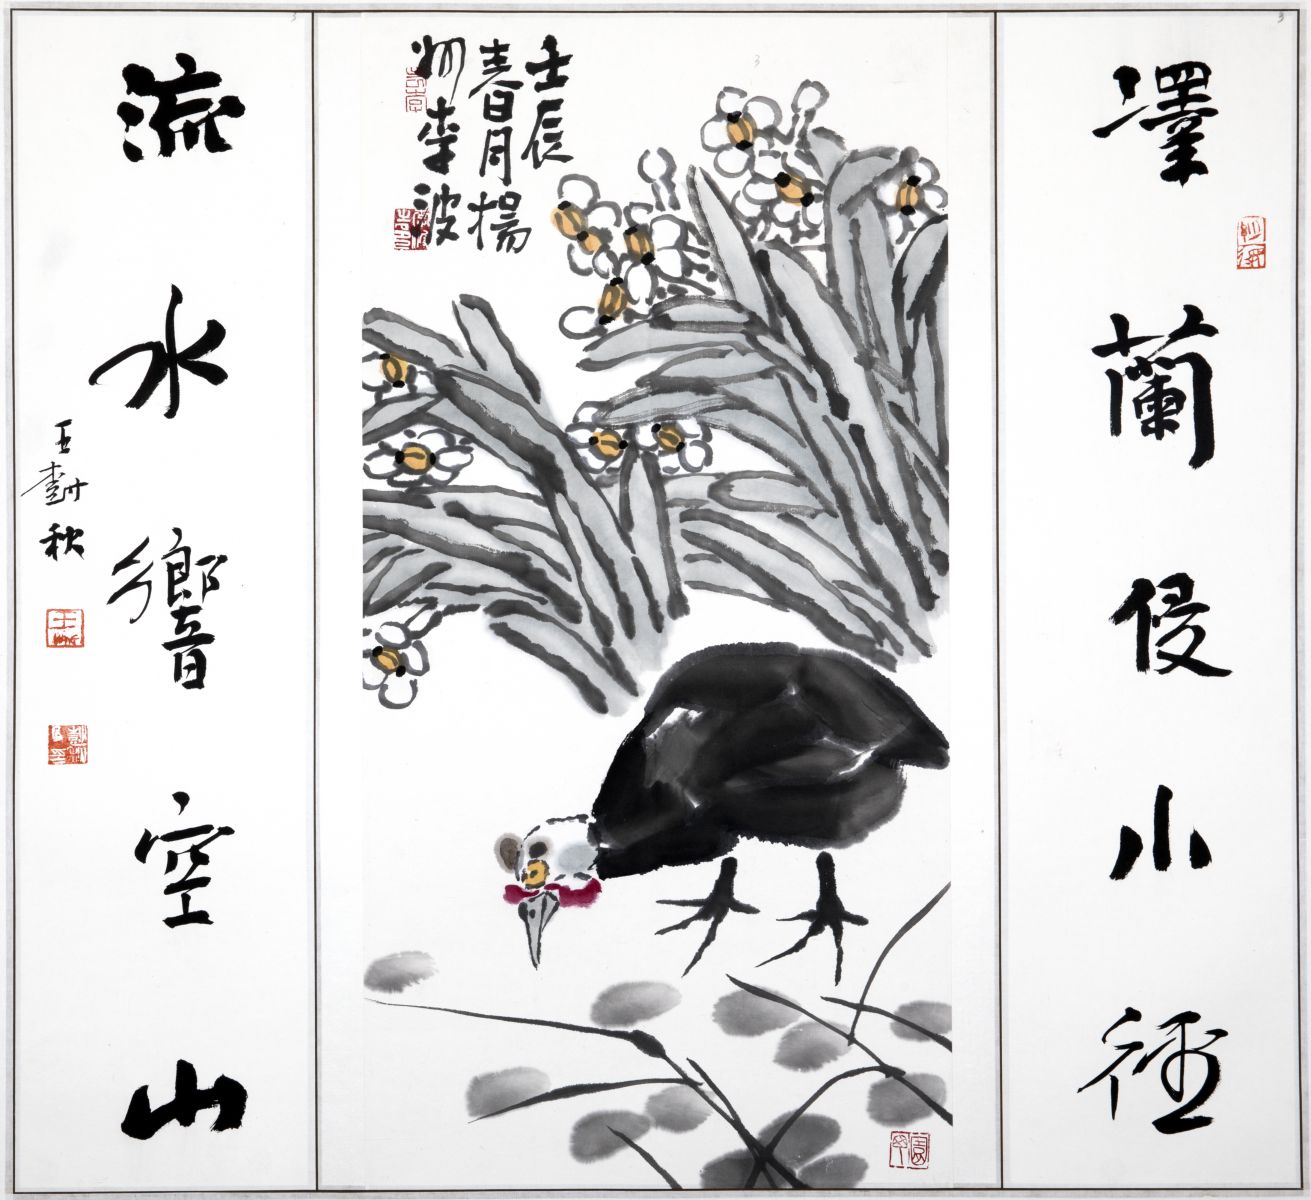 澤蘭侵小徑
壬辰
春月揚
州李波
流水響空山
王 秋